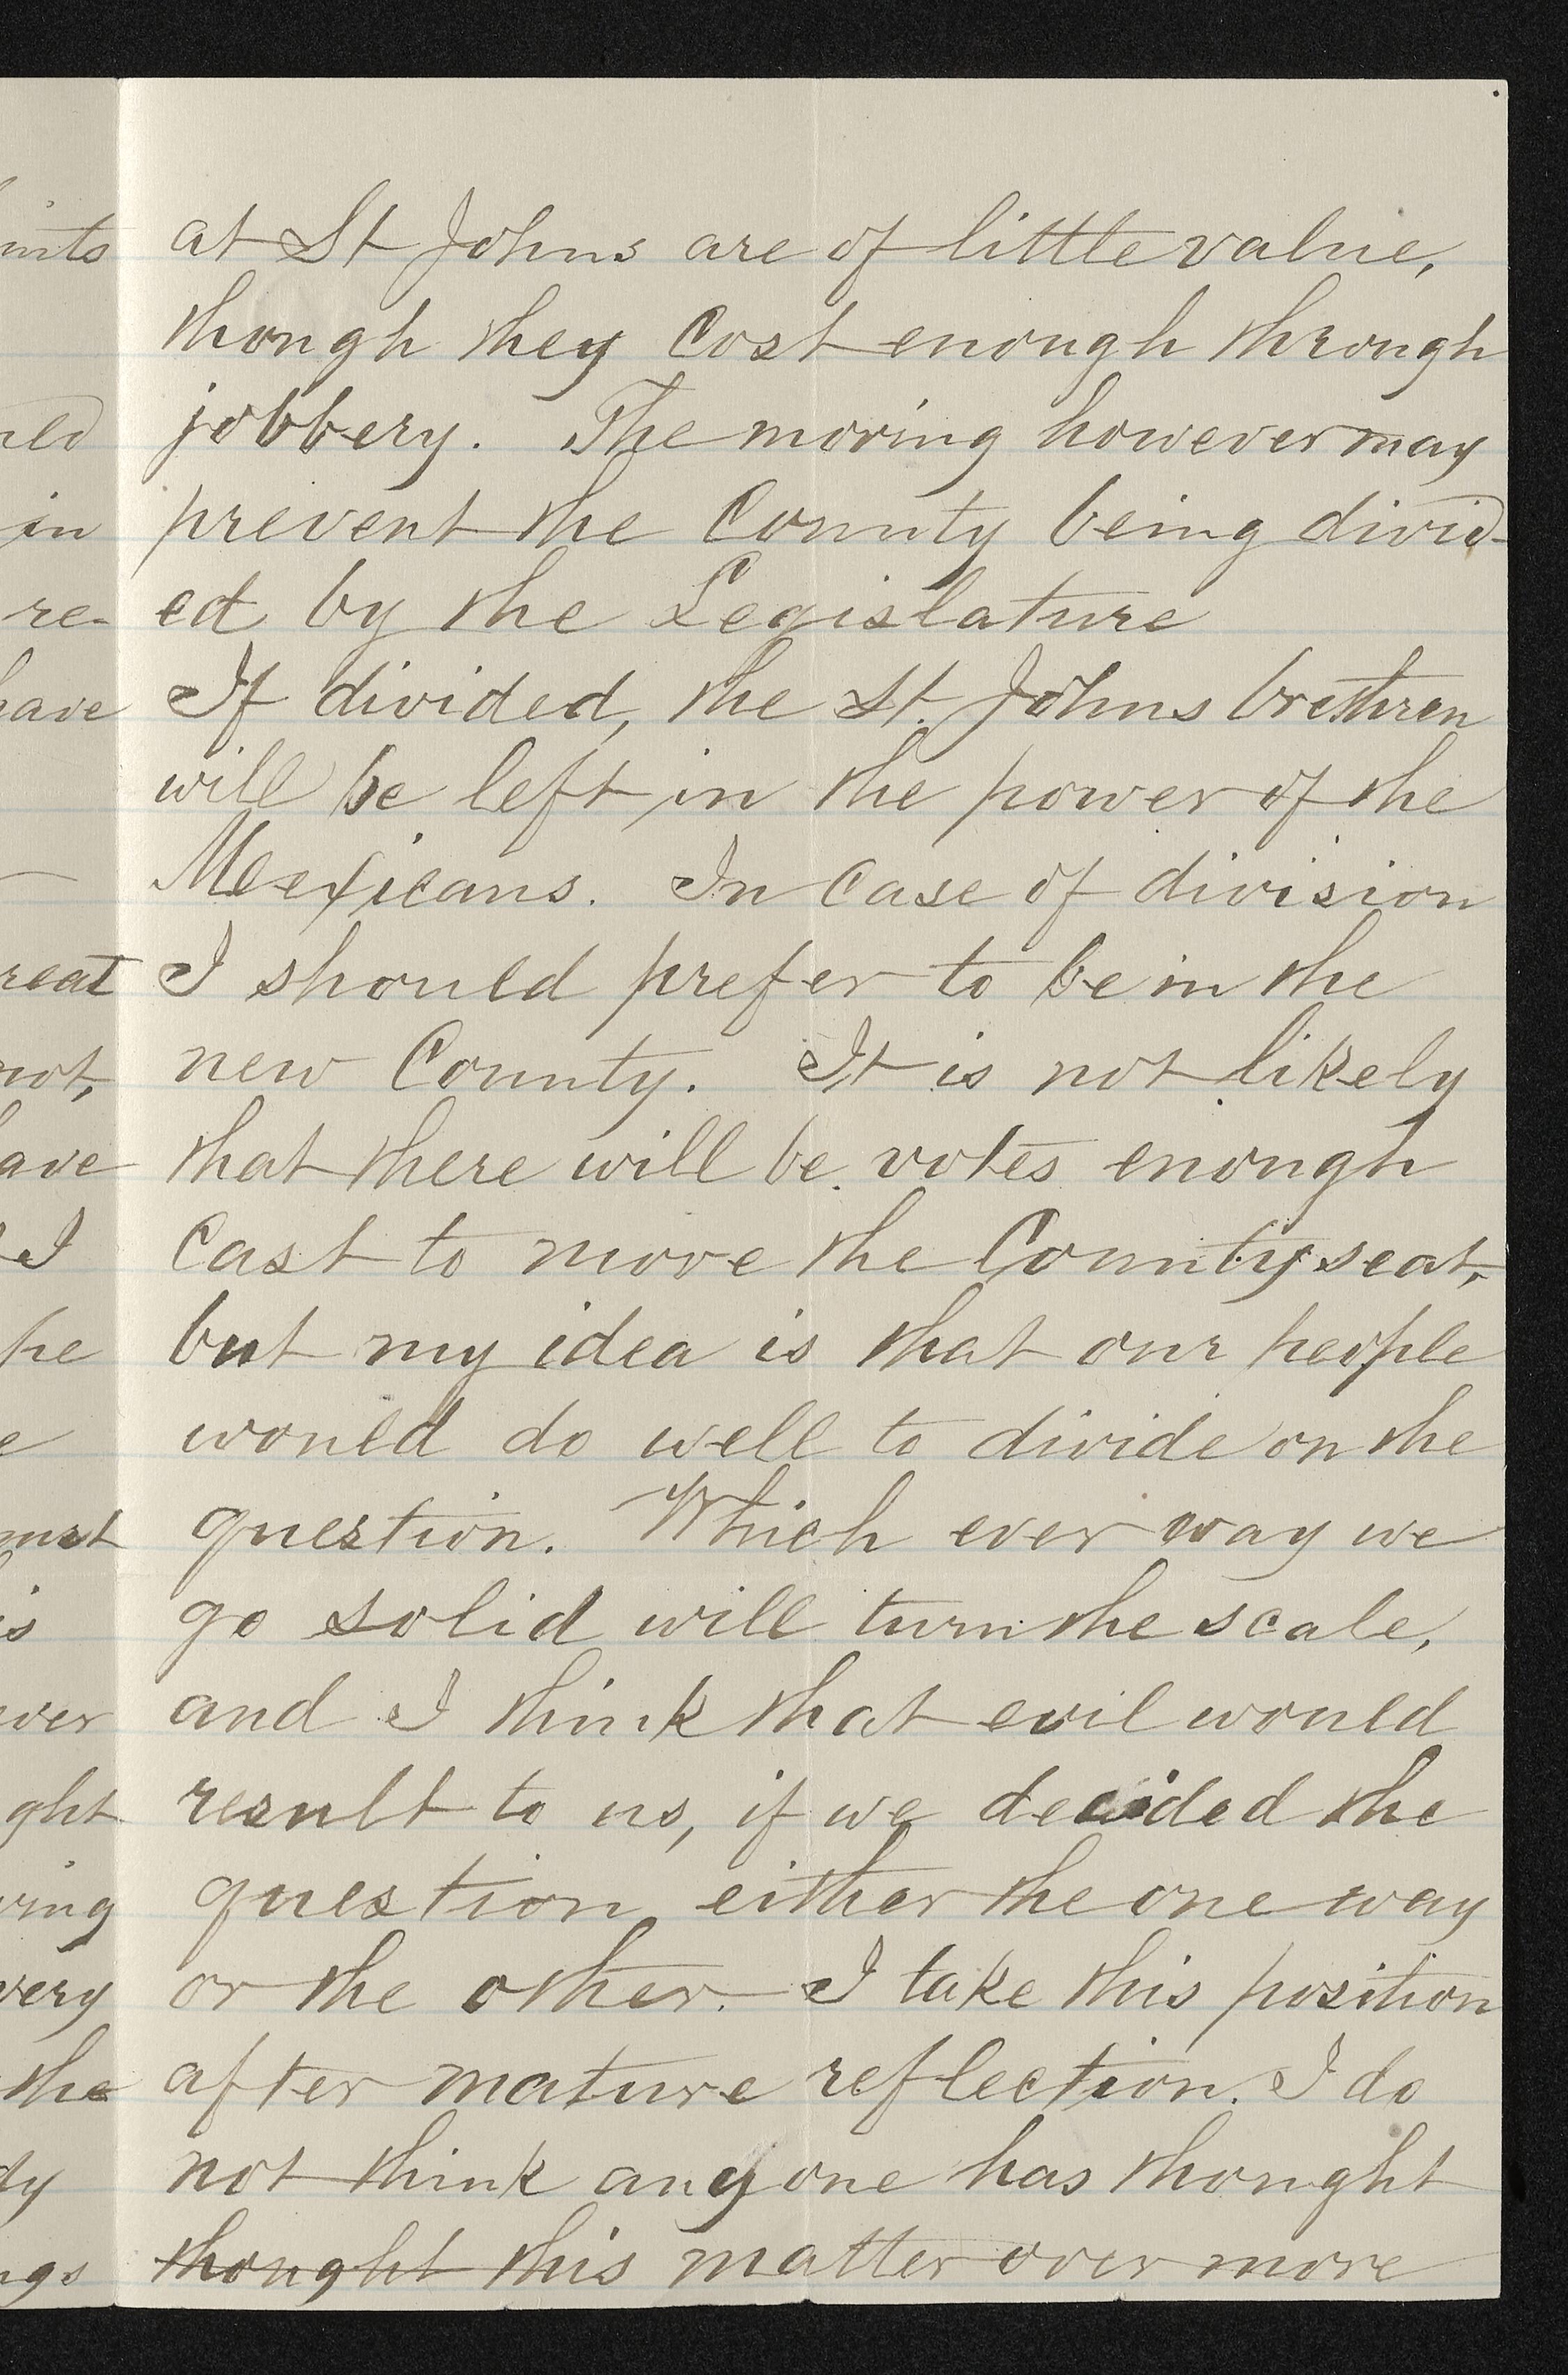 at St Johns are of little value,
though they Cost enough through
jobbery. The moving however may
prevent the County being divid-
ed by the Legislature
If divided, the St. Johns brethren
will be left in the power of the
Mexicans. In Case of division
I should prefer to be in the
new County. It is not likely
that there will be votes enough
Cast to move the County seat,
but my idea is that our people
would do well to divide on the
question. Which ever way we
go solid will turn the scale,
and I think that evil would
result to us, if we decided the
question either the one way
or the other. I take this position
after mature reflection. I do
not think anyone has thought
thought this matter over more